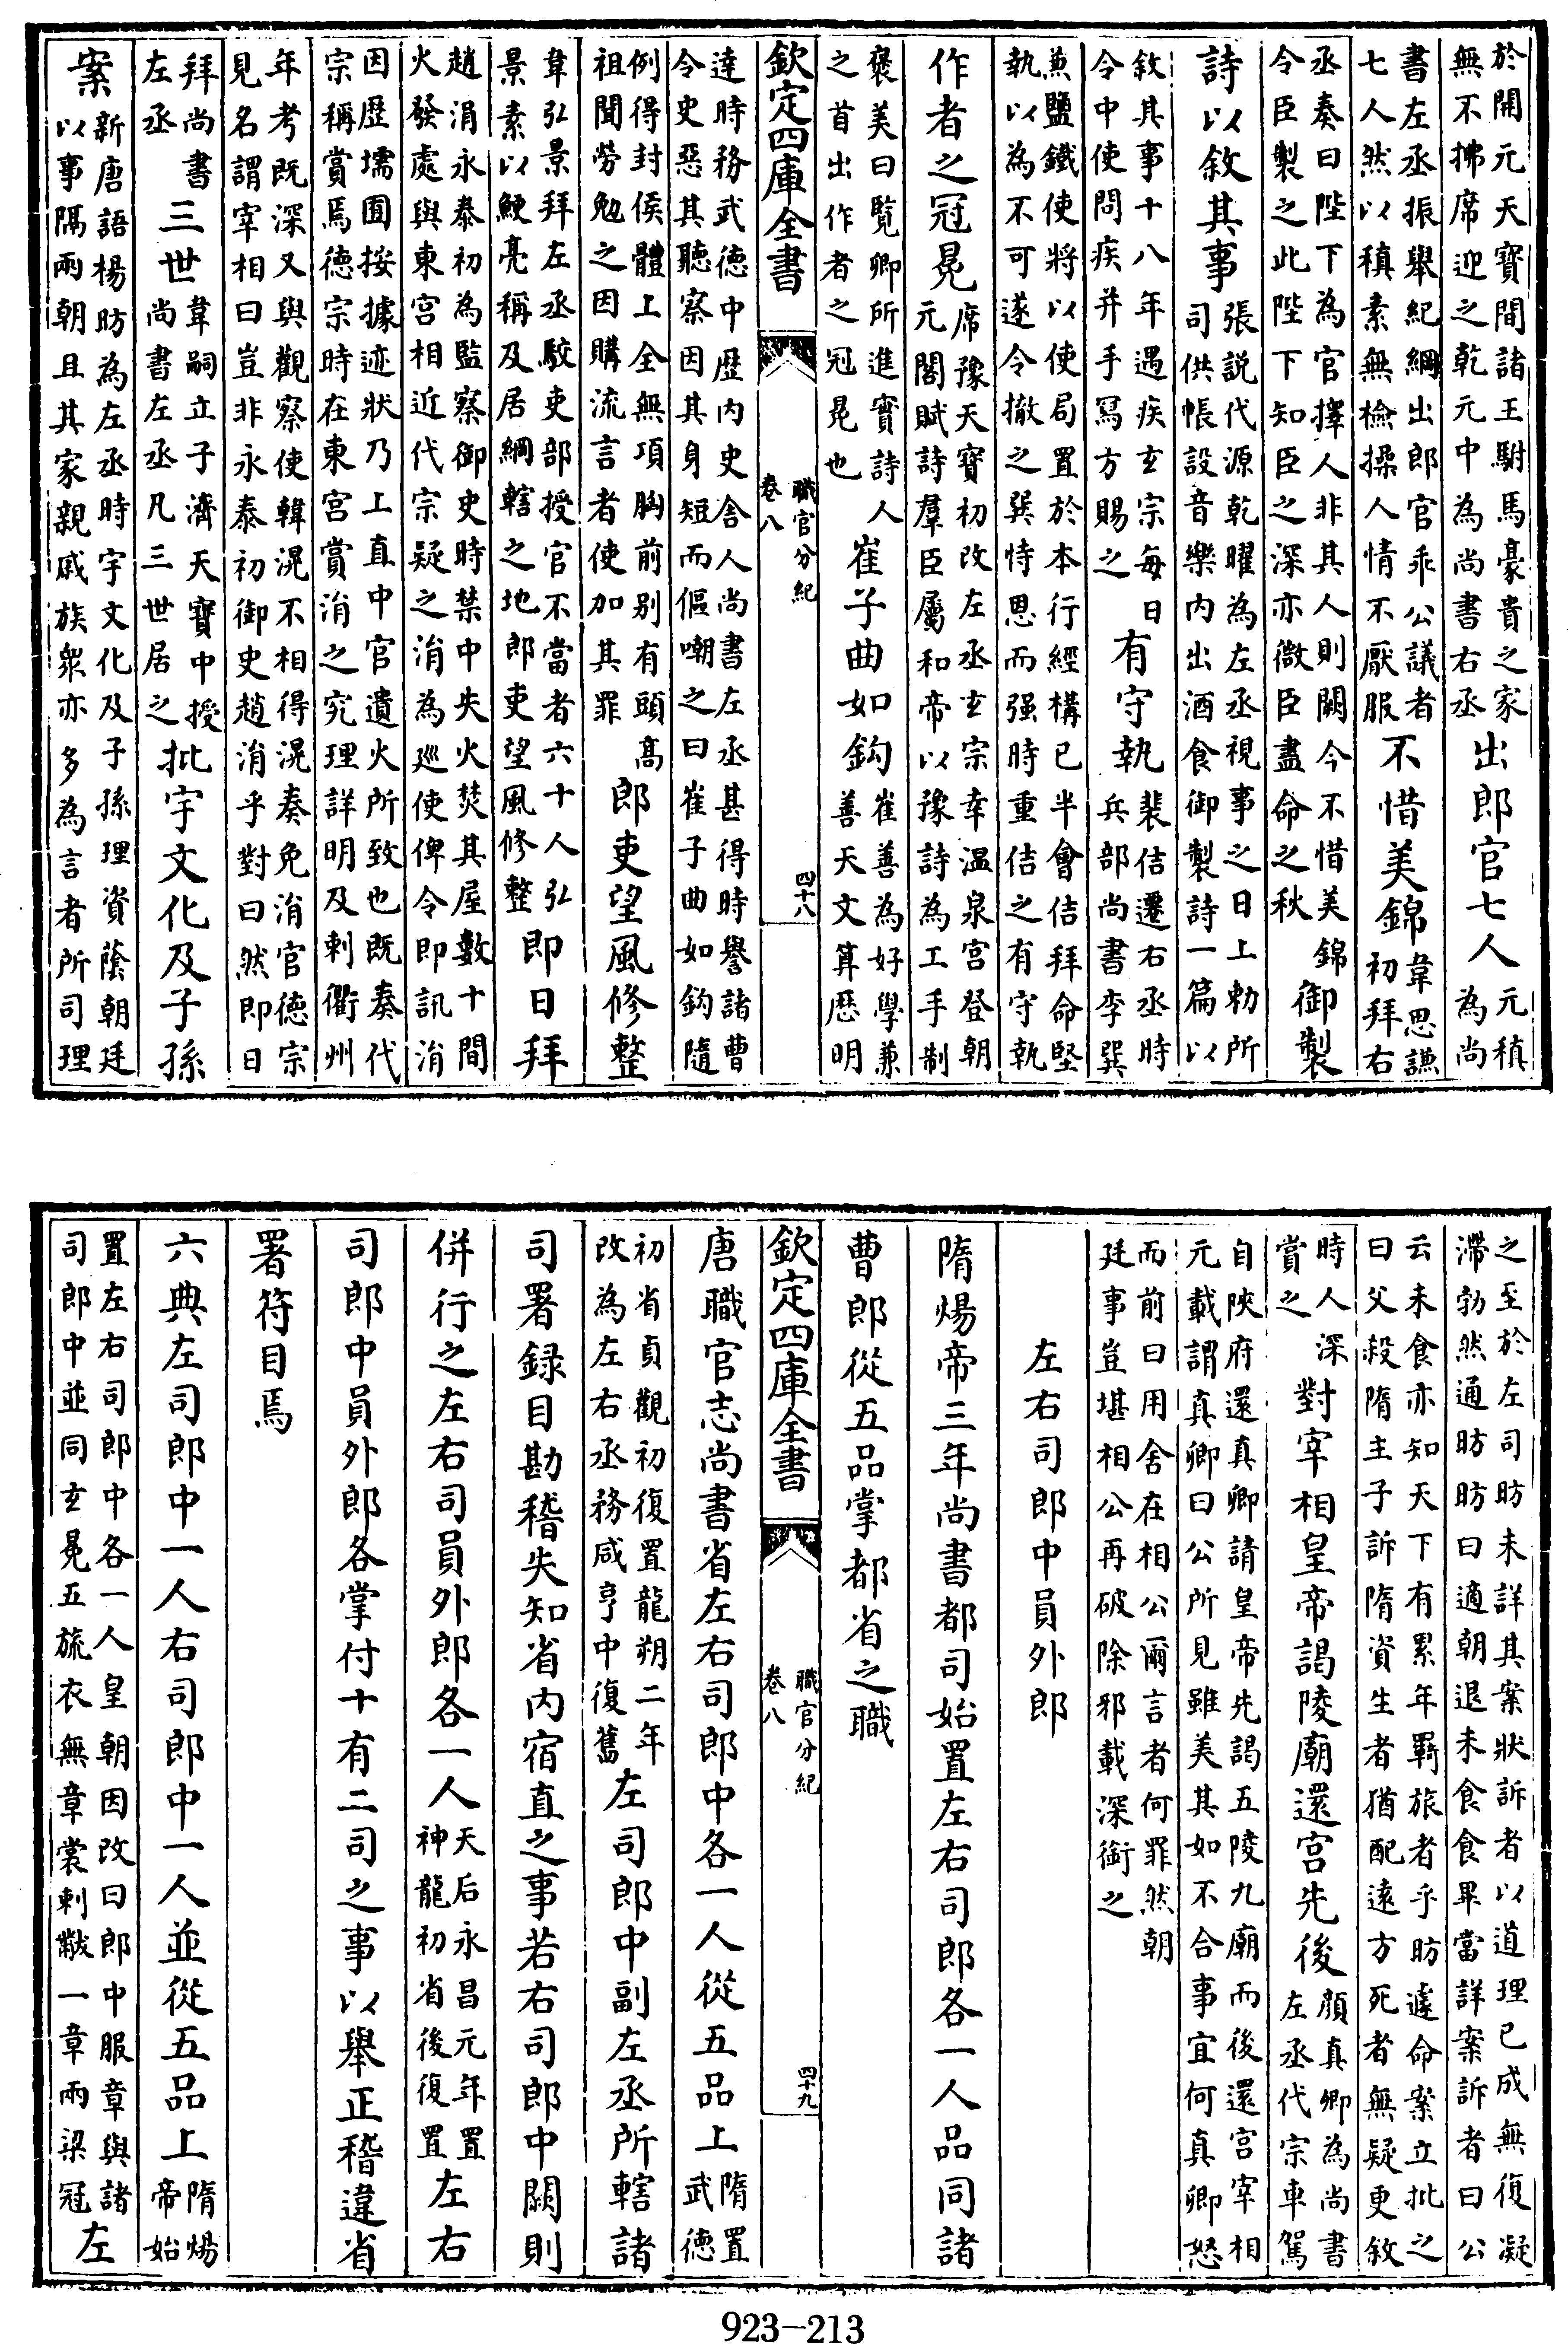 於開元天寶間諸王駙馬豪貴之家
無不拂席迎之乾元中為尚書右丞
出郎官七人
元稹
為尚
書左丞振舉紀綱出郎官乖公議者
七人然以稹素無檢操人情不厭服
不惜美錦
韋思謙
初拜右
丞奏曰陛下為官擇人非其人則闕今不惜美錦
令臣製之此陛下知臣之深亦微臣盡命之秋
御製
詩以敘其事
張説代源乾曜為左丞視事之日上勅所
司供帳設音樂内出酒食御製詩一篇以
敘其事十八年遇疾玄宗每日
令中使問疾并手冩方賜之
有守執
裴佶遷右丞時
兵部尚書李巽
兼鹽鐵使將以使局置於本行經構已半會佶拜命堅
執以為不可遂令撤之巽恃恩而强時重佶之有守執
作者之冠冕
席豫天寶初改左丞玄宗幸温泉宫登朝
元閣賦詩羣臣屬和帝以豫詩為工手制
褒美曰覧卿所進實詩人
之首出作者之冠冕也
崔子曲如鈎
崔善為好學兼
善天文算歷明
欽定四庫全書
職官分紀
卷八
四十八
達時務武德中歴内史舍人尚書左丞甚得時譽諸曹
令史惡其聽察因其身短而傴嘲之曰崔子曲如鈎隨
例得封侯體上全無項胸前别有頭髙
祖聞勞勉之因購流言者使加其罪
郎吏望風修整
韋弘景拜左丞駮吏部授官不當者六十人弘
景素以鯁亮稱及居綱轄之地郎吏望風修整
即日拜
趙涓永泰初為監察御史時禁中失火焚其屋數十間
火發處與東宫相近代宗疑之涓為巡使俾令即訊涓
因歴壖囿按據迹狀乃上直中官遺火所致也既奏代
宗稱賞焉德宗時在東宫賞涓之究理詳明及刺衢州
年考既深又與觀察使韓滉不相得滉奏免涓官德宗
見名謂宰相曰豈非永泰初御史趙涓乎對曰然即日
拜尚書
左丞
三世
韋嗣立子濟天寶中授
尚書左丞凡三世居之
批宇文化及子孫
案
新唐語楊昉為左丞時宇文化及子孫理資蔭朝廷
以事隔兩朝且其家親戚族衆亦多為言者所司理
之至於左司昉未詳其案狀訴者以道理已成無復凝
滯勃然通昉昉曰適朝退未食食畢當詳案訴者曰公
云未食亦知天下有累年羇旅者乎昉遽命案立批之
曰父殺隋主子訴隋資生者猶配遠方死者無疑更敘
時人深
賞之
對宰相皇帝謁陵廟還宫先後
顔真卿為尚書
左丞代宗車駕
自陜府還真卿請皇帝先謁五陵九廟而後還宫宰相
元載謂真卿曰公所見雖美其如不合事宜何真卿怒
而前曰用舍在相公爾言者何罪然朝
廷事豈堪相公再破除邪載深銜之
左右司郎中員外郎
隋煬帝三年尚書都司始置左右司郎各一人品同諸
曹郎從五品掌都省之職
欽定四庫全書
職官分紀
卷八
四十九
唐職官志尚書省左右司郎中各一人從五品上
隋置
武德
初省貞觀初復置龍朔二年
改為左右丞務咸亨中復舊
左司郎中副左丞所轄諸
司署録目勘稽失知省内宿直之事若右司郎中闕則
併行之左右司員外郎各一人
天后永昌元年置
神龍初省後復置
左右
司郎中員外郎各掌付十有二司之事以舉正稽違省
署符目焉
六典左司郎中一人右司郎中一人並從五品上
隋煬
帝始
置左右司郎中各一人皇朝因改曰郎中服章與諸
司郎中並同玄冕五旒衣無章裳刺黻一章兩梁冠
左
923-213